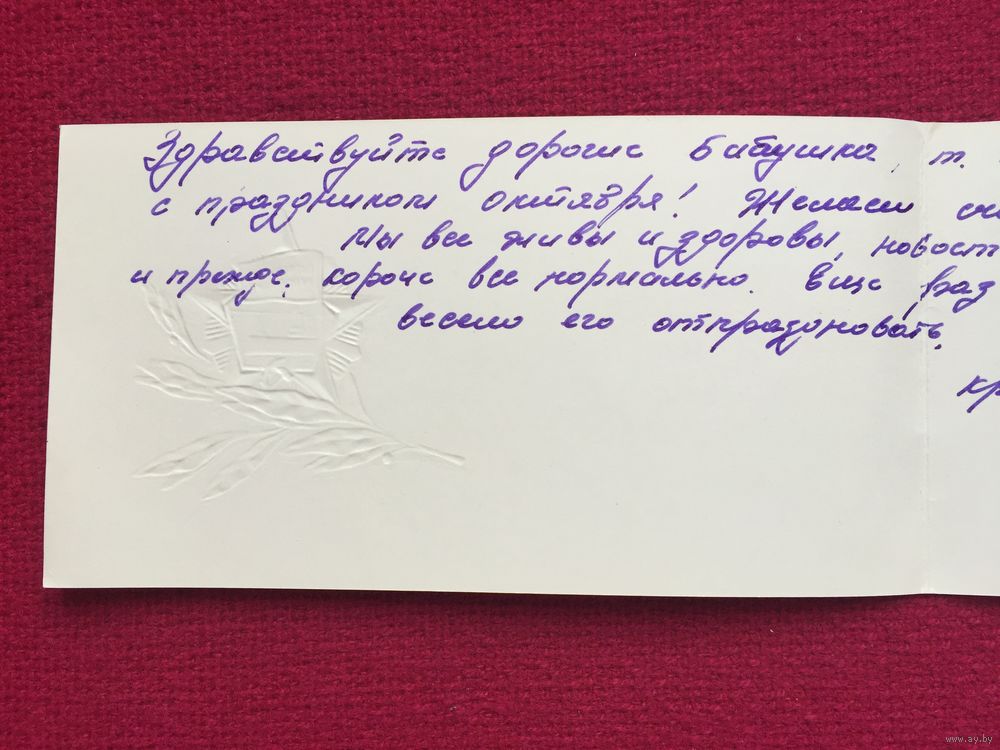 Здравствуйте дорогие бабушка, т.
с праздником октября! Желаем
Мы все живы и здоровы, новост
и прежде, короче все нормально. Еще раз
весело его отпраздновать.
кр
www.ay.by